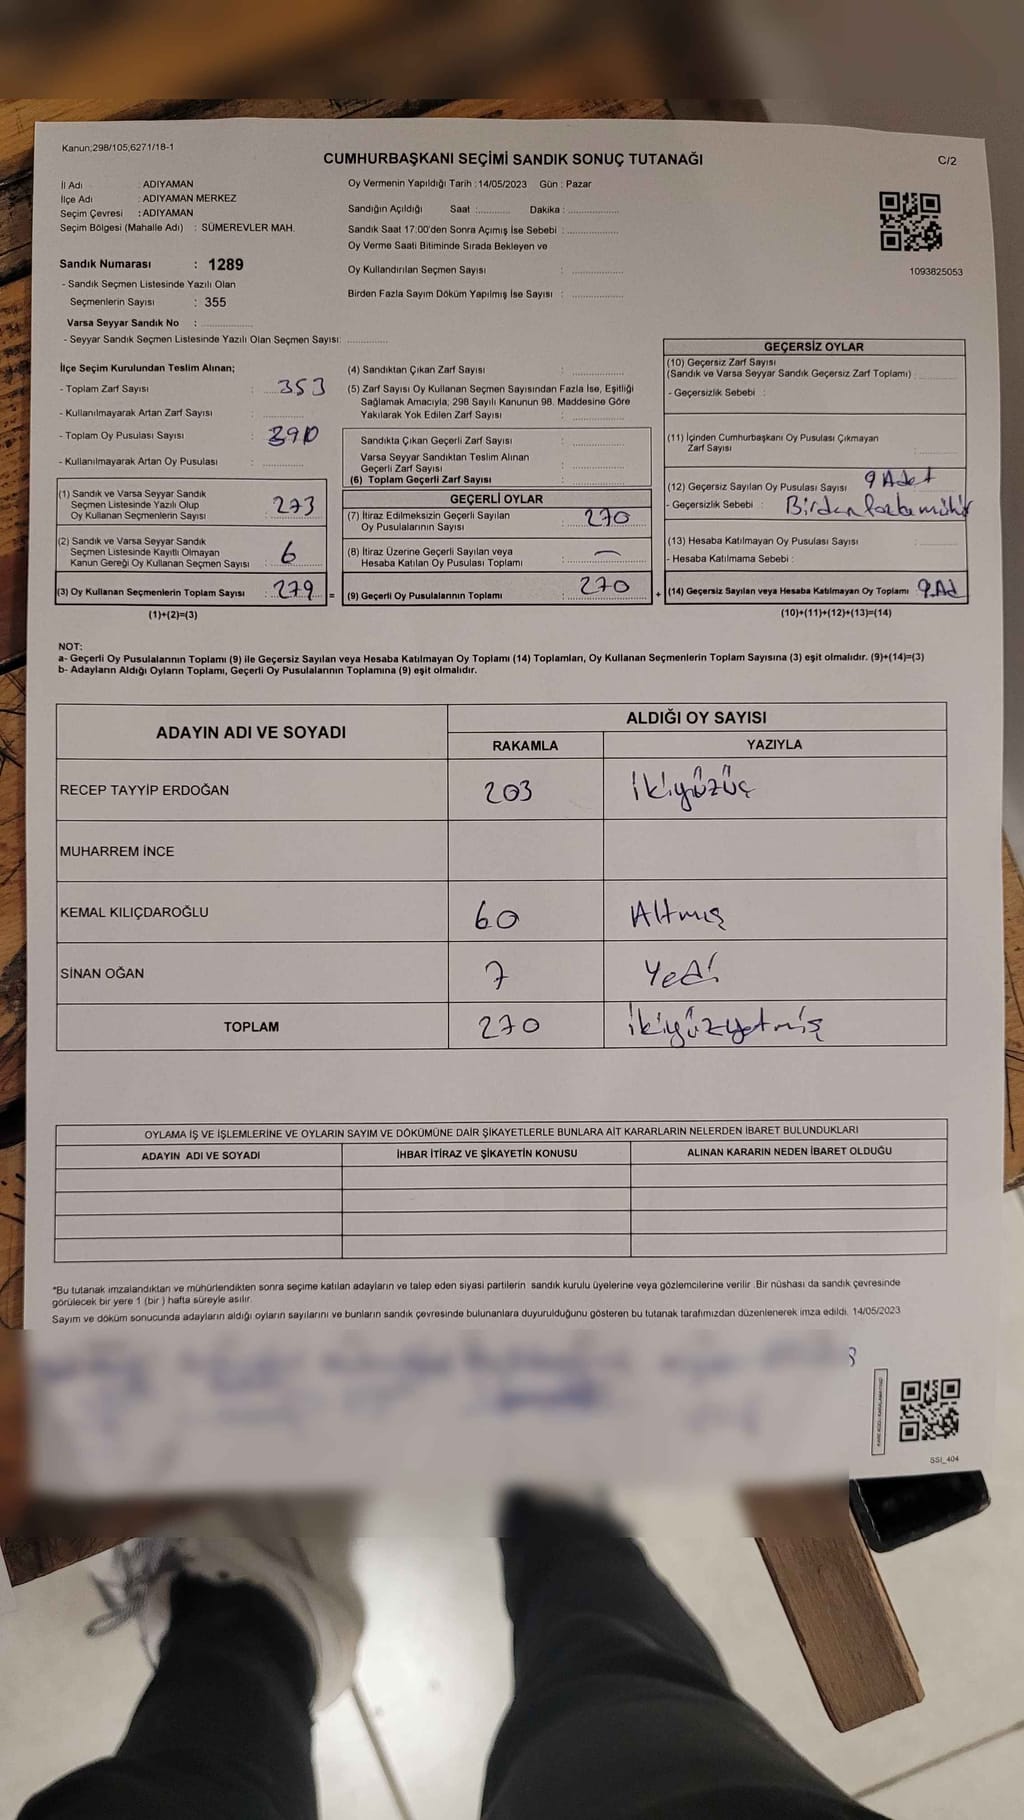 Kanun;298/105,6271/18-1
CUMHURBAŞKANI SEÇİMİ SANDIK SONUÇ TUTANAĞI
C/2
İl Adı : ADIYAMAN
İlçe Adı : ADIYAMAN MERKEZ
Seçim Çevresi : ADIYAMAN
Seçim Bölgesi (Mahalle Adı) : SÜMEREVLER MAH.
Sandık Numarası : 1289
- Sandık Seçmen Listesinde Yazılı Olan
Seçmenlerin Sayısı : 355
Varsa Seyyar Sandık No : ..............
- Seyyar Sandık Seçmen Listesinde Yazılı Olan Seçmen Sayısı: ............
Oy Vermenin Yapıldığı Tarih : 14/05/2023 Gün : Pazar
Sandığın Açıldığı Saat :........... Dakika : ................
Sandık Saat 17:00'den Sonra Açımış İse Sebebi : ................
Oy Verme Saati Bitiminde Sırada Bekleyen ve
Oy Kullandırılan Seçmen Sayısı : ................
Birden Fazla Sayım Döküm Yapılmış İse Sayısı : ................
1093825053
İlçe Seçim Kurulundan Teslim Alınan;
- Toplam Zarf Sayısı : 353
- Kullanılmayarak Artan Zarf Sayısı : ............
- Toplam Oy Pusulası Sayısı : 390
- Kullanılmayarak Artan Oy Pusulası : ............
(1) Sandık ve Varsa Seyyar Sandık
Seçmen Listesinde Yazılı Olup
Oy Kullanan Seçmenlerin Sayısı : 273
(2) Sandık ve Varsa Seyyar Sandık
Seçmen Listesinde Kayıtlı Olmayan
Kanun Gereği Oy Kullanan Seçmen Sayısı : 6
(3) Oy Kullanan Seçmenlerin Toplam Sayısı : 279 =
(1)+(2)=(3)
(4) Sandıktan Çıkan Zarf Sayısı : ................
(5) Zarf Sayısı Oy Kullanan Seçmen Sayısından Fazla İse, Eşitliği
Sağlamak Amacıyla; 298 Sayılı Kanunun 98. Maddesine Göre
Yakılarak Yok Edilen Zarf Sayısı : ................
Sandıkta Çıkan Geçerli Zarf Sayısı : ................
Varsa Seyyar Sandıktan Teslim Alınan
Geçerli Zarf Sayısı : ................
(6) Toplam Geçerli Zarf Sayısı : ................
GEÇERLİ OYLAR
(7) İtiraz Edilmeksizin Geçerli Sayılan
Oy Pusulalarının Sayısı : 270
(8) İtiraz Üzerine Geçerli Sayılan veya
Hesaba Katılan Oy Pusulası Toplamı : —
(9) Geçerli Oy Pusulalarının Toplamı : 270 +
GEÇERSİZ OYLAR
(10) Geçersiz Zarf Sayısı
(Sandık ve Varsa Seyyar Sandık Geçersiz Zarf Toplamı) : ............
- Geçersizlik Sebebi :
(11) İçinden Cumhurbaşkanı Oy Pusulası Çıkmayan
Zarf Sayısı : ............
(12) Geçersiz Sayılan Oy Pusulası Sayısı : 9 Adet
- Geçersizlik Sebebi : Birden fazla mühür
(13) Hesaba Katılmayan Oy Pusulası Sayısı : ............
- Hesaba Katılmama Sebebi :
(14) Geçersiz Sayılan veya Hesaba Katılmayan Oy Toplamı : 9.Ad
(10)+(11)+(12)+(13)=(14)
NOT:
a- Geçerli Oy Pusulalarının Toplamı (9) ile Geçersiz Sayılan veya Hesaba Katılmayan Oy Toplamı (14) Toplamları, Oy Kullanan Seçmenlerin Toplam Sayısına (3) eşit olmalıdır. (9)+(14)=(3)
b- Adayların Aldığı Oyların Toplamı, Geçerli Oy Pusulalarının Toplamına (9) eşit olmalıdır.
ADAYIN ADI VE SOYADI
ALDIĞI OY SAYISI
RAKAMLA YAZIYLA
RECEP TAYYİP ERDOĞAN 203 ikiyüzüç
MUHARREM İNCE
KEMAL KILIÇDAROĞLU 60 Altmış
SİNAN OĞAN 7 Yedi
TOPLAM 270 ikiyüzyetmiş
OYLAMA İŞ VE İŞLEMLERİNE VE OYLARIN SAYIM VE DÖKÜMÜNE DAİR ŞİKAYETLERLE BUNLARA AİT KARARLARIN NELERDEN İBARET BULUNDUKLARI
ADAYIN ADI VE SOYADI İHBAR İTİRAZ VE ŞİKAYETİN KONUSU ALINAN KARARIN NEDEN İBARET OLDUĞU
*Bu tutanak imzalandıktan ve mühürlendikten sonra seçime katılan adayların ve talep eden siyasi partilerin sandık kurulu üyelerine veya gözlemcilerine verilir .Bir nüshası da sandık çevresinde
görülecek bir yere 1 (bir ) hafta süreyle asılır.
Sayım ve döküm sonucunda adayların aldığı oyların sayılarını ve bunların sandık çevresinde bulunanlara duyurulduğunu gösteren bu tutanak tarafımızdan düzenlenerek imza edildi. 14/05/2023
SSI_404